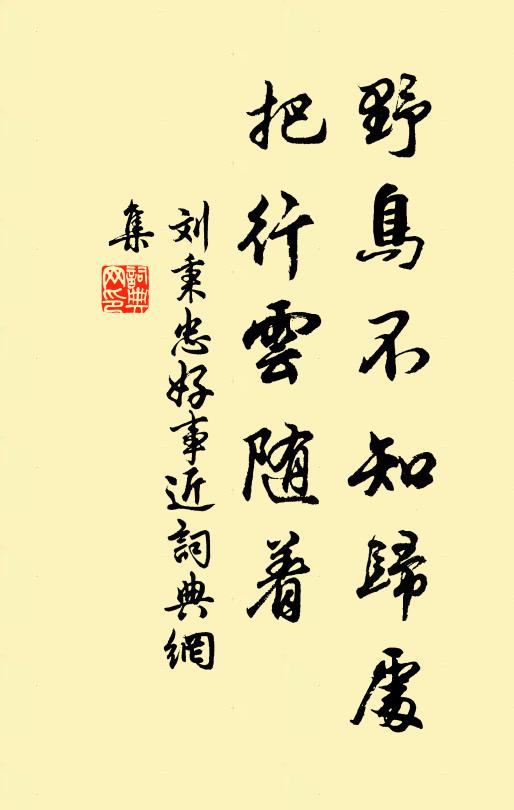 野鳥不知歸處
把行雲随着
刘秉忠好事近詞典網
集
詞典网印